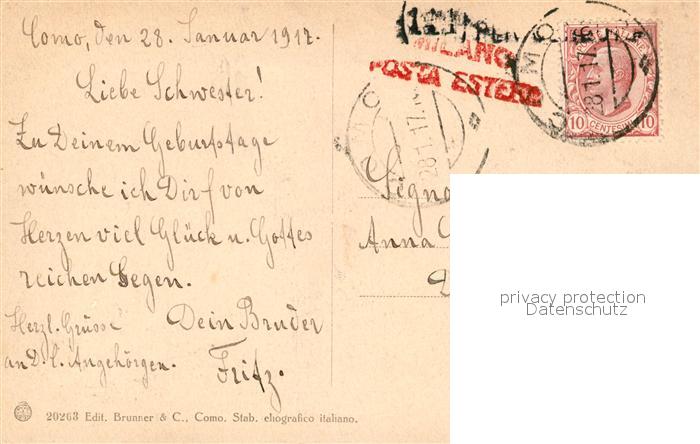 Como, den 28. Januar 1917.
Liebe Schwester!
Zu Deinem Geburtstage
wünsche ich Dir von
Herzen viel Glück u. Gottes
reichen Segen.
Herzl. Grüsse Dein Bruder
an D. l. Angehörgen. Fritz.
20263 Edit. Brunner & C., Como. Stab. eliografico italiano.
MILANO
POSTA ESTERA
COMO
28.1.17
10 CENTESIMI 10
28.1.17
Signo
Anna
privacy protection
Datenschutz